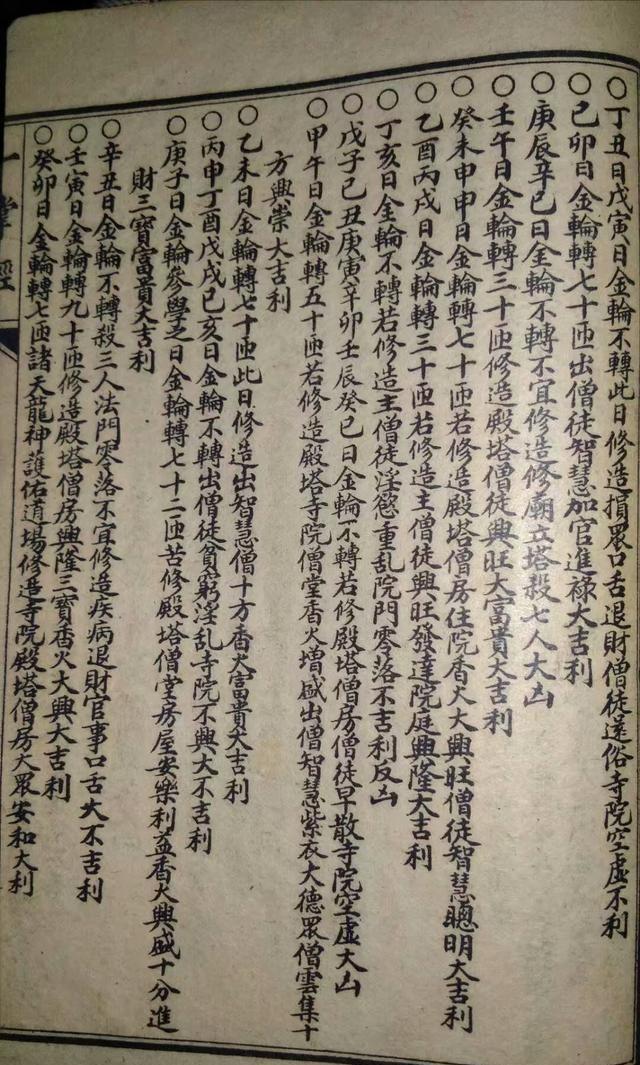 ○丁丑日戊寅日金輪不轉此日修造損眾口舌退財僧徒還俗寺院空虛不利
○己卯日金輪轉七十匝出僧徒智慧加官進祿大吉利
○庚辰辛巳日金輪不轉不宜修造修廟立塔殺七人大凶
○壬午日金輪轉三十匝修造殿塔僧徒興旺大富貴大吉利
○癸未申申日金輪轉七十匝若修造殿塔僧房住院香火大興旺僧徒智慧聰明大吉利
○乙酉丙戌日金輪轉三十匝若修造主僧徒興旺發達院庭興隆大吉利
○丁亥日金輪不轉若修造主僧徒淫慾重乱院門零落不吉利反凶
○戊子己丑庚寅辛卯壬辰癸巳日金輪不轉若修殿塔僧房僧徒早散寺院空虛大凶
○甲午日金輪轉五十匝若修造殿塔寺院僧堂香火增盛出僧智慧紫衣大德眾僧雲集十
方興崇大吉利
○乙未日金輪轉七十匝此日修造出智慧僧十方香火富貴大吉利
○丙申丁酉戊戌己亥日金輪不轉出僧徒貧窮淫乱寺院不興大不吉利
○庚子日金輪參學之日金輪轉七十二匝苦修殿塔僧堂房屋安樂利益香火興盛十分進
財三寶富貴大吉利
○辛丑日金輪不轉殺三人法門零落不宜修造疾病退財官事口舌大不吉利
○壬寅日金輪轉九十匝修造殿塔僧房興隆三寶香火大興大吉利
○癸卯日金輪轉七匝諸天龍神護佑道場修造寺院殿塔僧房大眾安和大利
一掌經